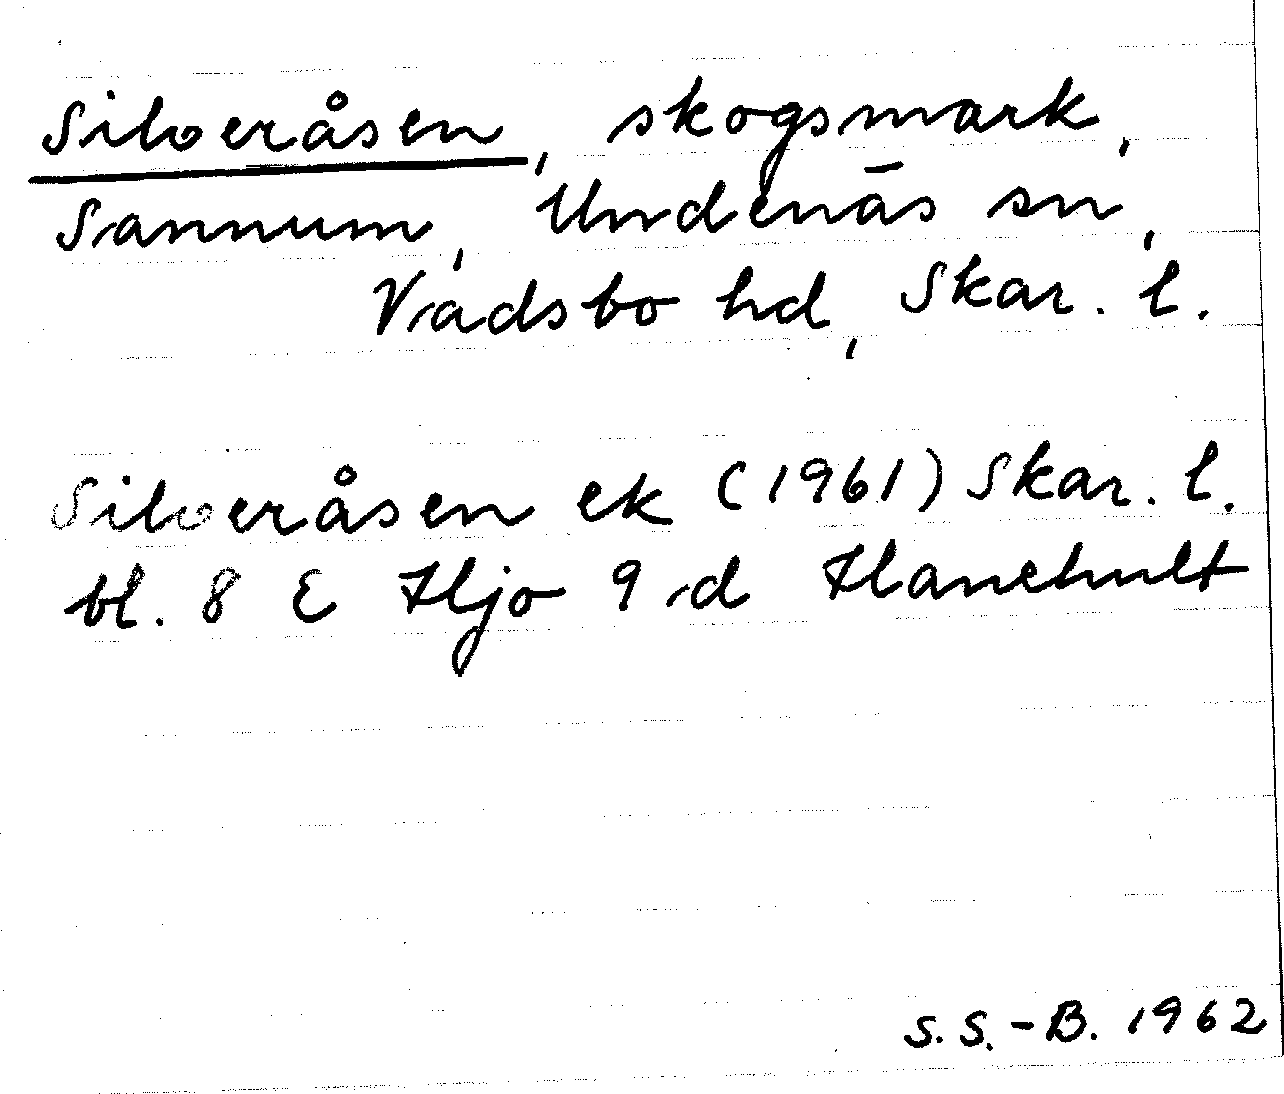 Silveråsen, skogsmark,
Sannum, Undenäs sn,
Vadsbo hd, Skar. l.
Silveråsen ek (1961) Skar. l.
bl. 8 E Hjo 9 d Hanehult
S. S.-B. 1962